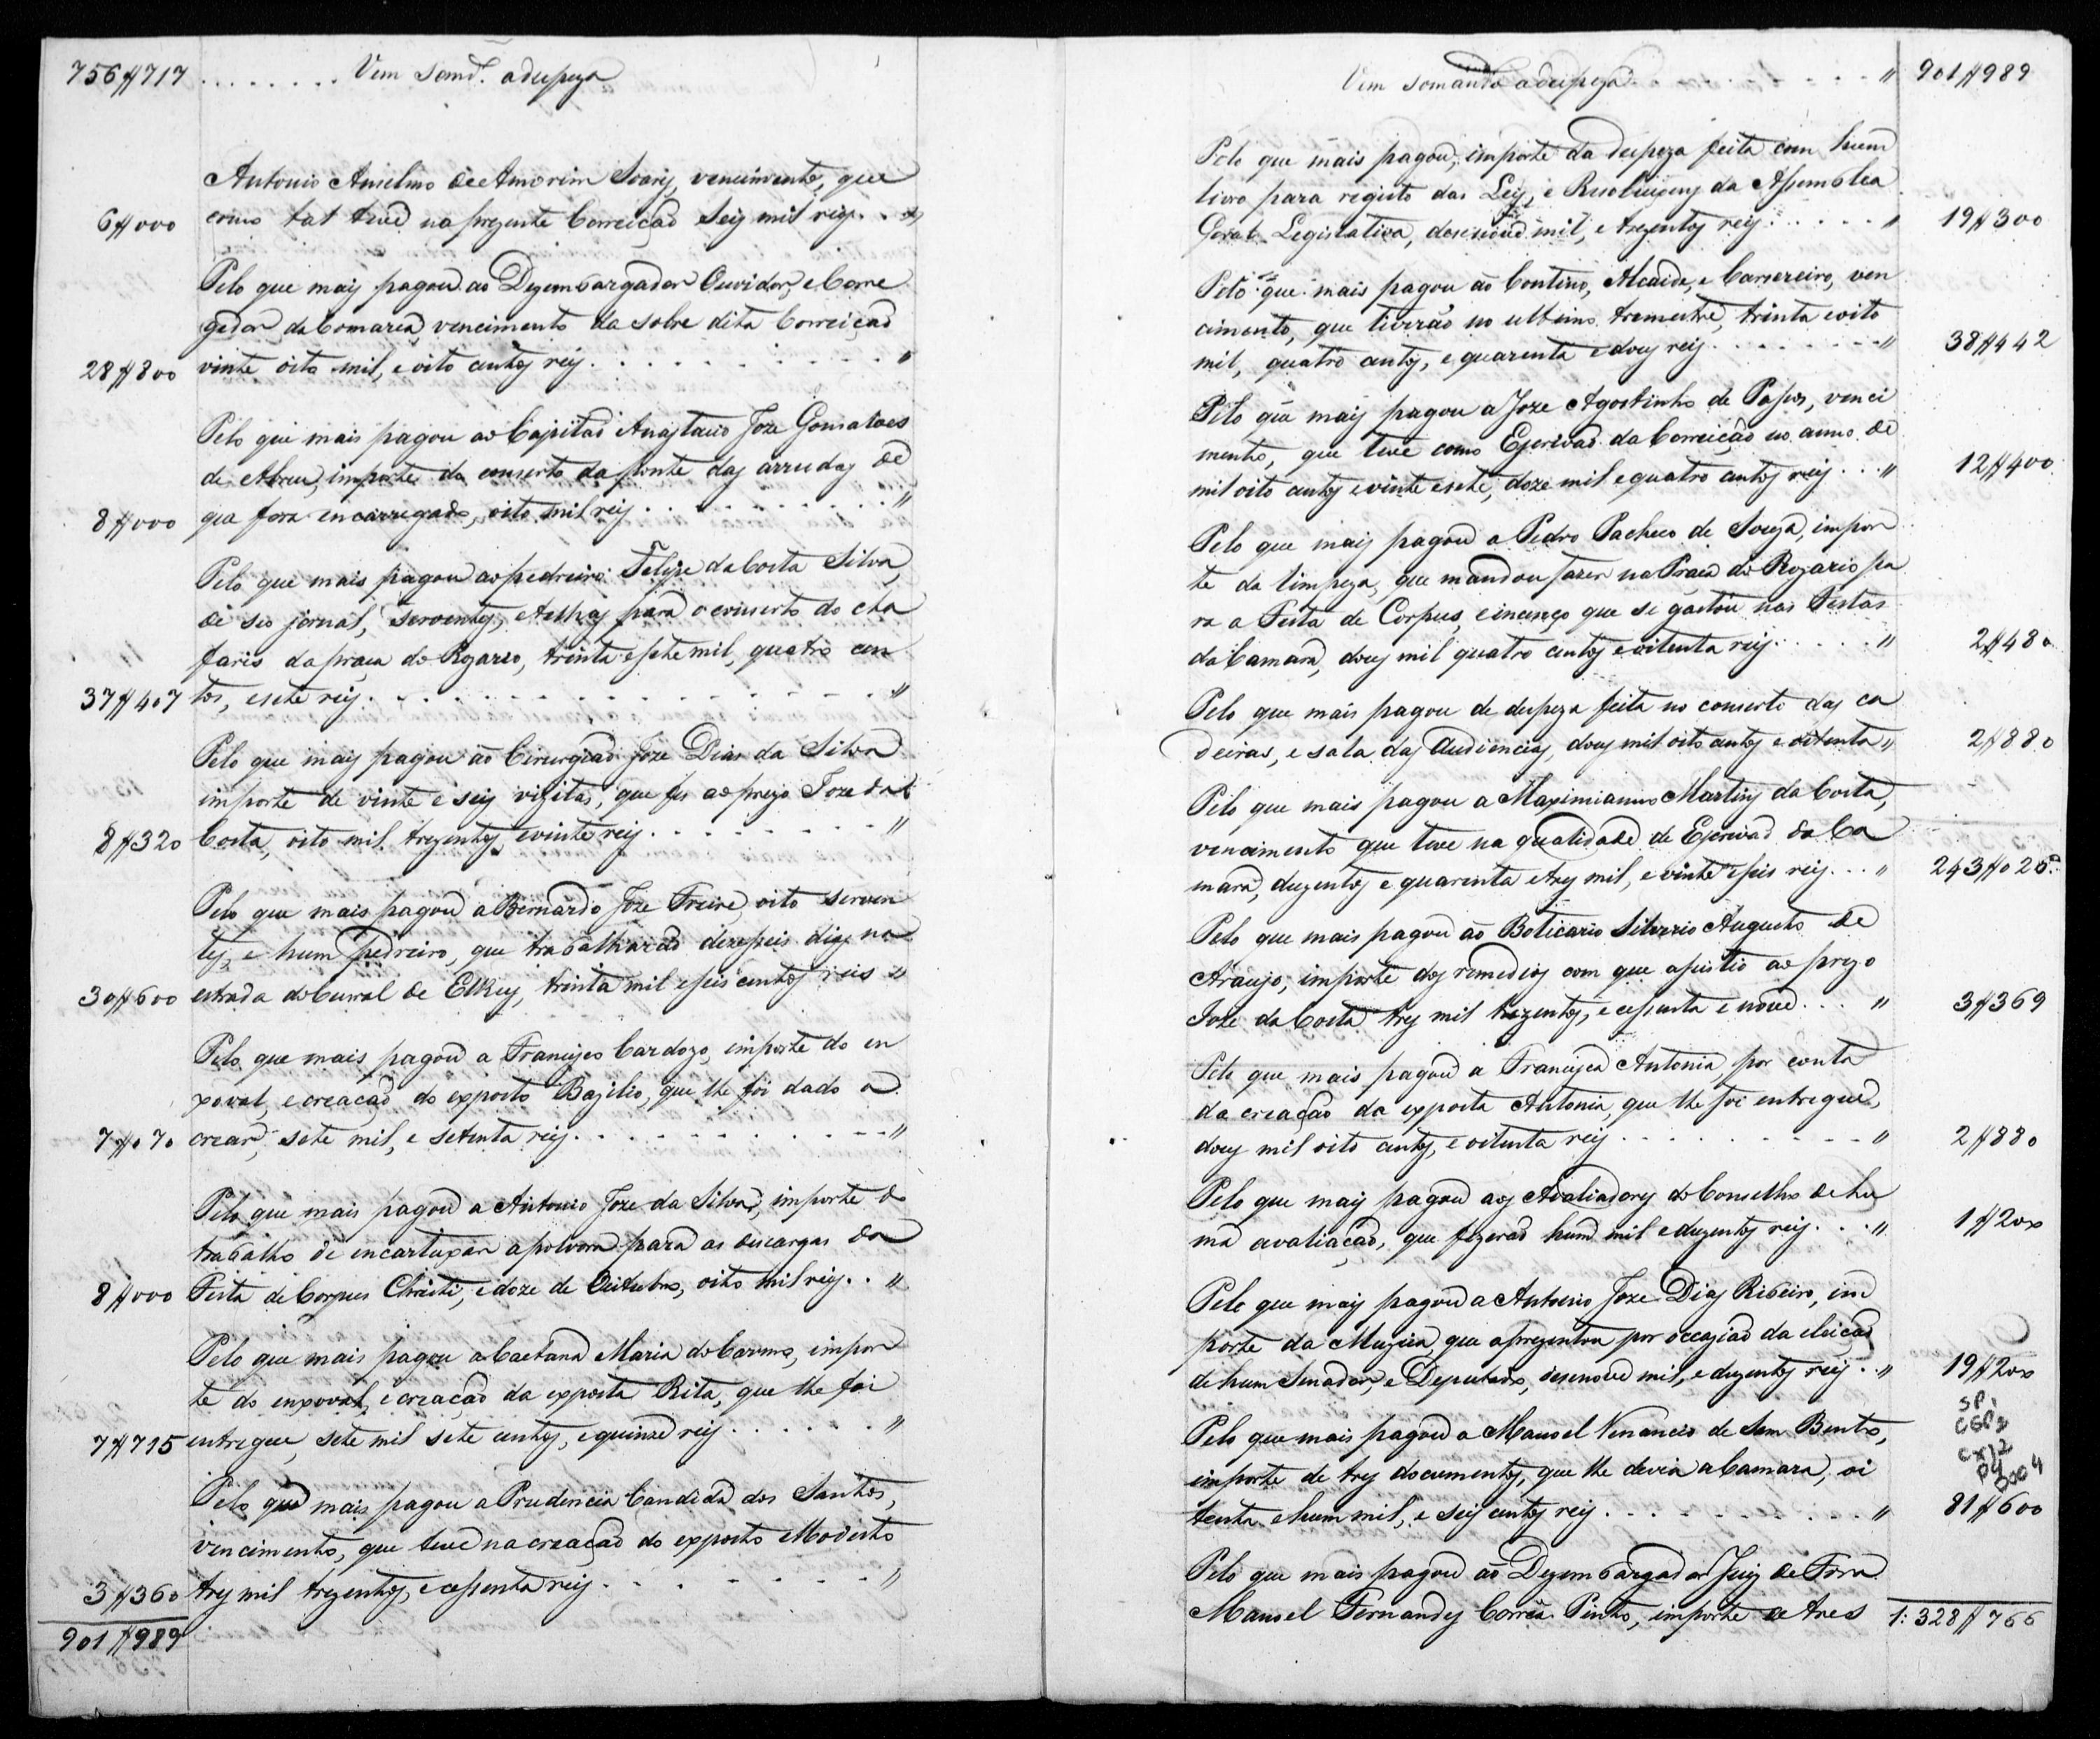 756$717 . . . . . . . . Vem somd.º a despeza
Antonio Anselmo de Amorim Soares, vencimento, que
6$000 como tal teve na prezente Correição seis mil reis . . "
Pelo que mais pagou ao Dezembargador Ouvidor, e Corre
gedor da Comarca, vencimento da sobre dita Correição
28$800 vinte oito mil, e oito centos reis . . . . . . . "
Pelo que mais pagou ao Capitão Anastacio Joze Gonsalves
de Abreu, importe do conserto da ponte das arrudas de
8$000 que fora encarregado, oito mil reis . . . . . . . "
Pelo que mais pagou ao pedreiro Felipe da Costa Silva,
de seo jornal, serventes, e telhas para o conserto do cha
faris da praça do Rozario, trinta e sete mil, quatro cen
37$407 tos, e sete reis . . . . . . . . . . . . "
Pelo que mais pagou ao Cirurgião Joze Dias da Silva
importe de vinte e seis vizitas, que fes ao prezo Joze da
8$320 Costa, oito mil trezentos, e vinte reis . . . . . . . "
Pelo que mais pagou a Bernardo Joze Freire, oito serven
tes, e hum pedreiro, que trabalharão dezeseis dias na
30$600 estrada do Curral de ElRey, trinta mil e seis centos reis "
Pelo que mais pagou a Francisco Cardozo, importe do en
xoval, e creação do exposto Bazilio, que lhe foi dado a
7$070 crear, sete mil, e setenta reis . . . . . . . . "
Pelo que mais pagou a Antonio Joze da Silva, importe do
trabalho de encartuxar a polvora para as descargas da
8$000 Festa de Corpus Christi, e doze de Outubro, oito mil reis . . "
Pelo que mais pagou a Caetana Maria do Carmo, impor
te do enxoval, e creação da exposta Rita, que lhe foi
7$715 entregue, sete mil sete centos, e quinze reis . . . . . . "
Pelo que mais pagou a Prudencia Candida dos Santos,
vencimento, que teve na creação do exposto Modesto
3$360 tres mil trezentos, e cessenta reis . . . . . . . "
901$989
Vem somando a despeza . . . . . . " 901$989
Pelo que mais pagou, importe da despeza feita com hum
livro para registo das Leis, e Rezoluçoens da Assemblea
Geral Legislativa, desenove mil, e trezentos reis . . . . . " 19$300
Pelo que mais pagou ao Contino, Alcaide, e Carsereiro, ven
cimento, que tiverão no ultimo tremestre, trinta e oito
mil, quatro centos, e quarenta e dous reis . . . . . . . " 38$442
Pelo que mais pagou a Joze Agostinho de Passos, venci
mento, que teve como Escrivão da Correição no anno de
mil oito centos e vinte e sete, doze mil e quatro centos reis . . . " 12$400
Pelo que mais pagou a Pedro Pacheco de Souza, impor
te da limpeza, que mandou fazer na Praça do Rozario pa
ra a Festa de Corpus, e incenço que se gastou nas Festas
da Camara, dous mil quatro centos e oitenta reis . . . . . " 2$480
Pelo que mais pagou de despeza feita no conserto das ca
deiras, e sala das Audiencias, dous mil oito centos e oitenta " 2$880
Pelo que mais pagou a Maximianno Martins da Costa,
vencimento que teve na qualidade de Escrivão da Ca
mara, duzentos e quarenta e tres mil, e vinte e seis reis . . . " 243$026
Pelo que mais pagou ao Boticario Silverio Augusto de
Araujo, importe dos remedios com que assistio ao prezo
Joze da Costa tres mil trezentos, e cessenta e nove . . . " 3$369
Pelo que mais pagou a Francisca Antonia, por conta
da creação da exposta Antonia, que lhe foi entregue,
dous mil oito centos, e oitenta reis . . . . . . . . . " 2$880
Pelo que mais pagou aos Avaliadores do Conselho de hu
ma avaliação, que fizerão hum mil e duzentos reis . . . " 1$200
Pelo que mais pagou a Antonio Joze Dias Ribeiro, im
porte da Muzica, que aprezentou por occazião da eleição
de hum Senador, e Deputado, desenove mil, e duzentos reis . . " 19$200
SP1
CGP2
CX12
P4
D004
Pelo que mais pagou a Manoel Venancio de Sam Bento,
importe de tres documentos, que lhe devia a Camara, oi
tenta e hum mil, e seis centos reis . . . . . . . . . " 81$600
Pelo que mais pagou ao Dezembargador Juiz de Fora
Manoel Fernandes Corrêa Pinto, importe de tres 1:328$766